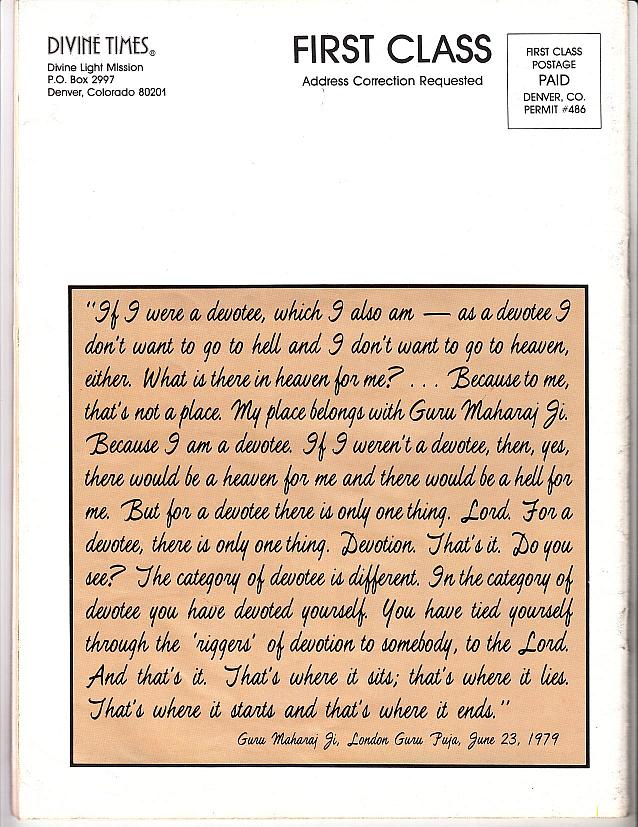 DIVINE TIMES®
Divine Light Mission
P.O. Box 2997
Denver, Colorado 80201
FIRST CLASS
Address Correction Requested
FIRST CLASS
POSTAGE
PAID
DENVER, CO.
PERMIT #486
"If I were a devotee, which I also am — as a devotee I
don't want to go to hell and I don't want to go to heaven,
either. What is there in heaven for me? . . . Because to me,
that's not a place. My place belongs with Guru Maharaj Ji.
Because I am a devotee. If I weren't a devotee, then, yes,
there would be a heaven for me and there would be a hell for
me. But for a devotee there is only one thing. Lord. For a
devotee, there is only one thing. Devotion. That's it. Do you
see? The category of devotee is different. In the category of
devotee you have devoted yourself. You have tied yourself
through the 'riggers' of devotion to somebody, to the Lord.
And that's it. That's where it sits; that's where it lies.
That's where it starts and that's where it ends."
Guru Maharaj Ji, London Guru Puja, June 23, 1979